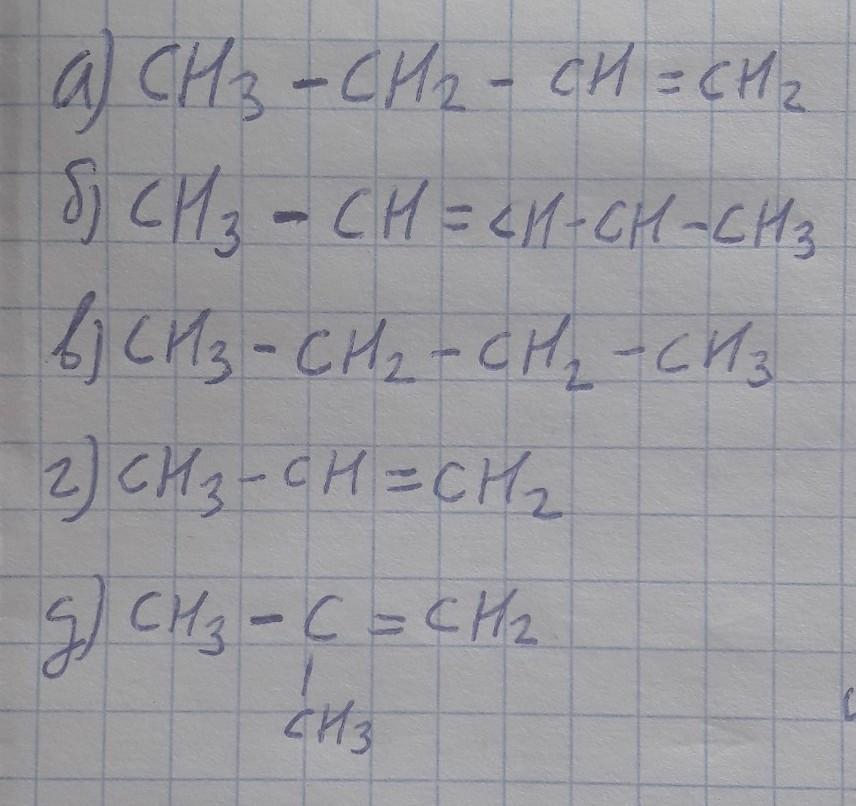 а) CH3 - CH2 - CH = CH2
б) CH3 - CH = CH - CH - CH3
в) CH3 - CH2 - CH2 - CH3
г) CH3 - CH = CH2
д) CH3 - C = CH2
|
CH3